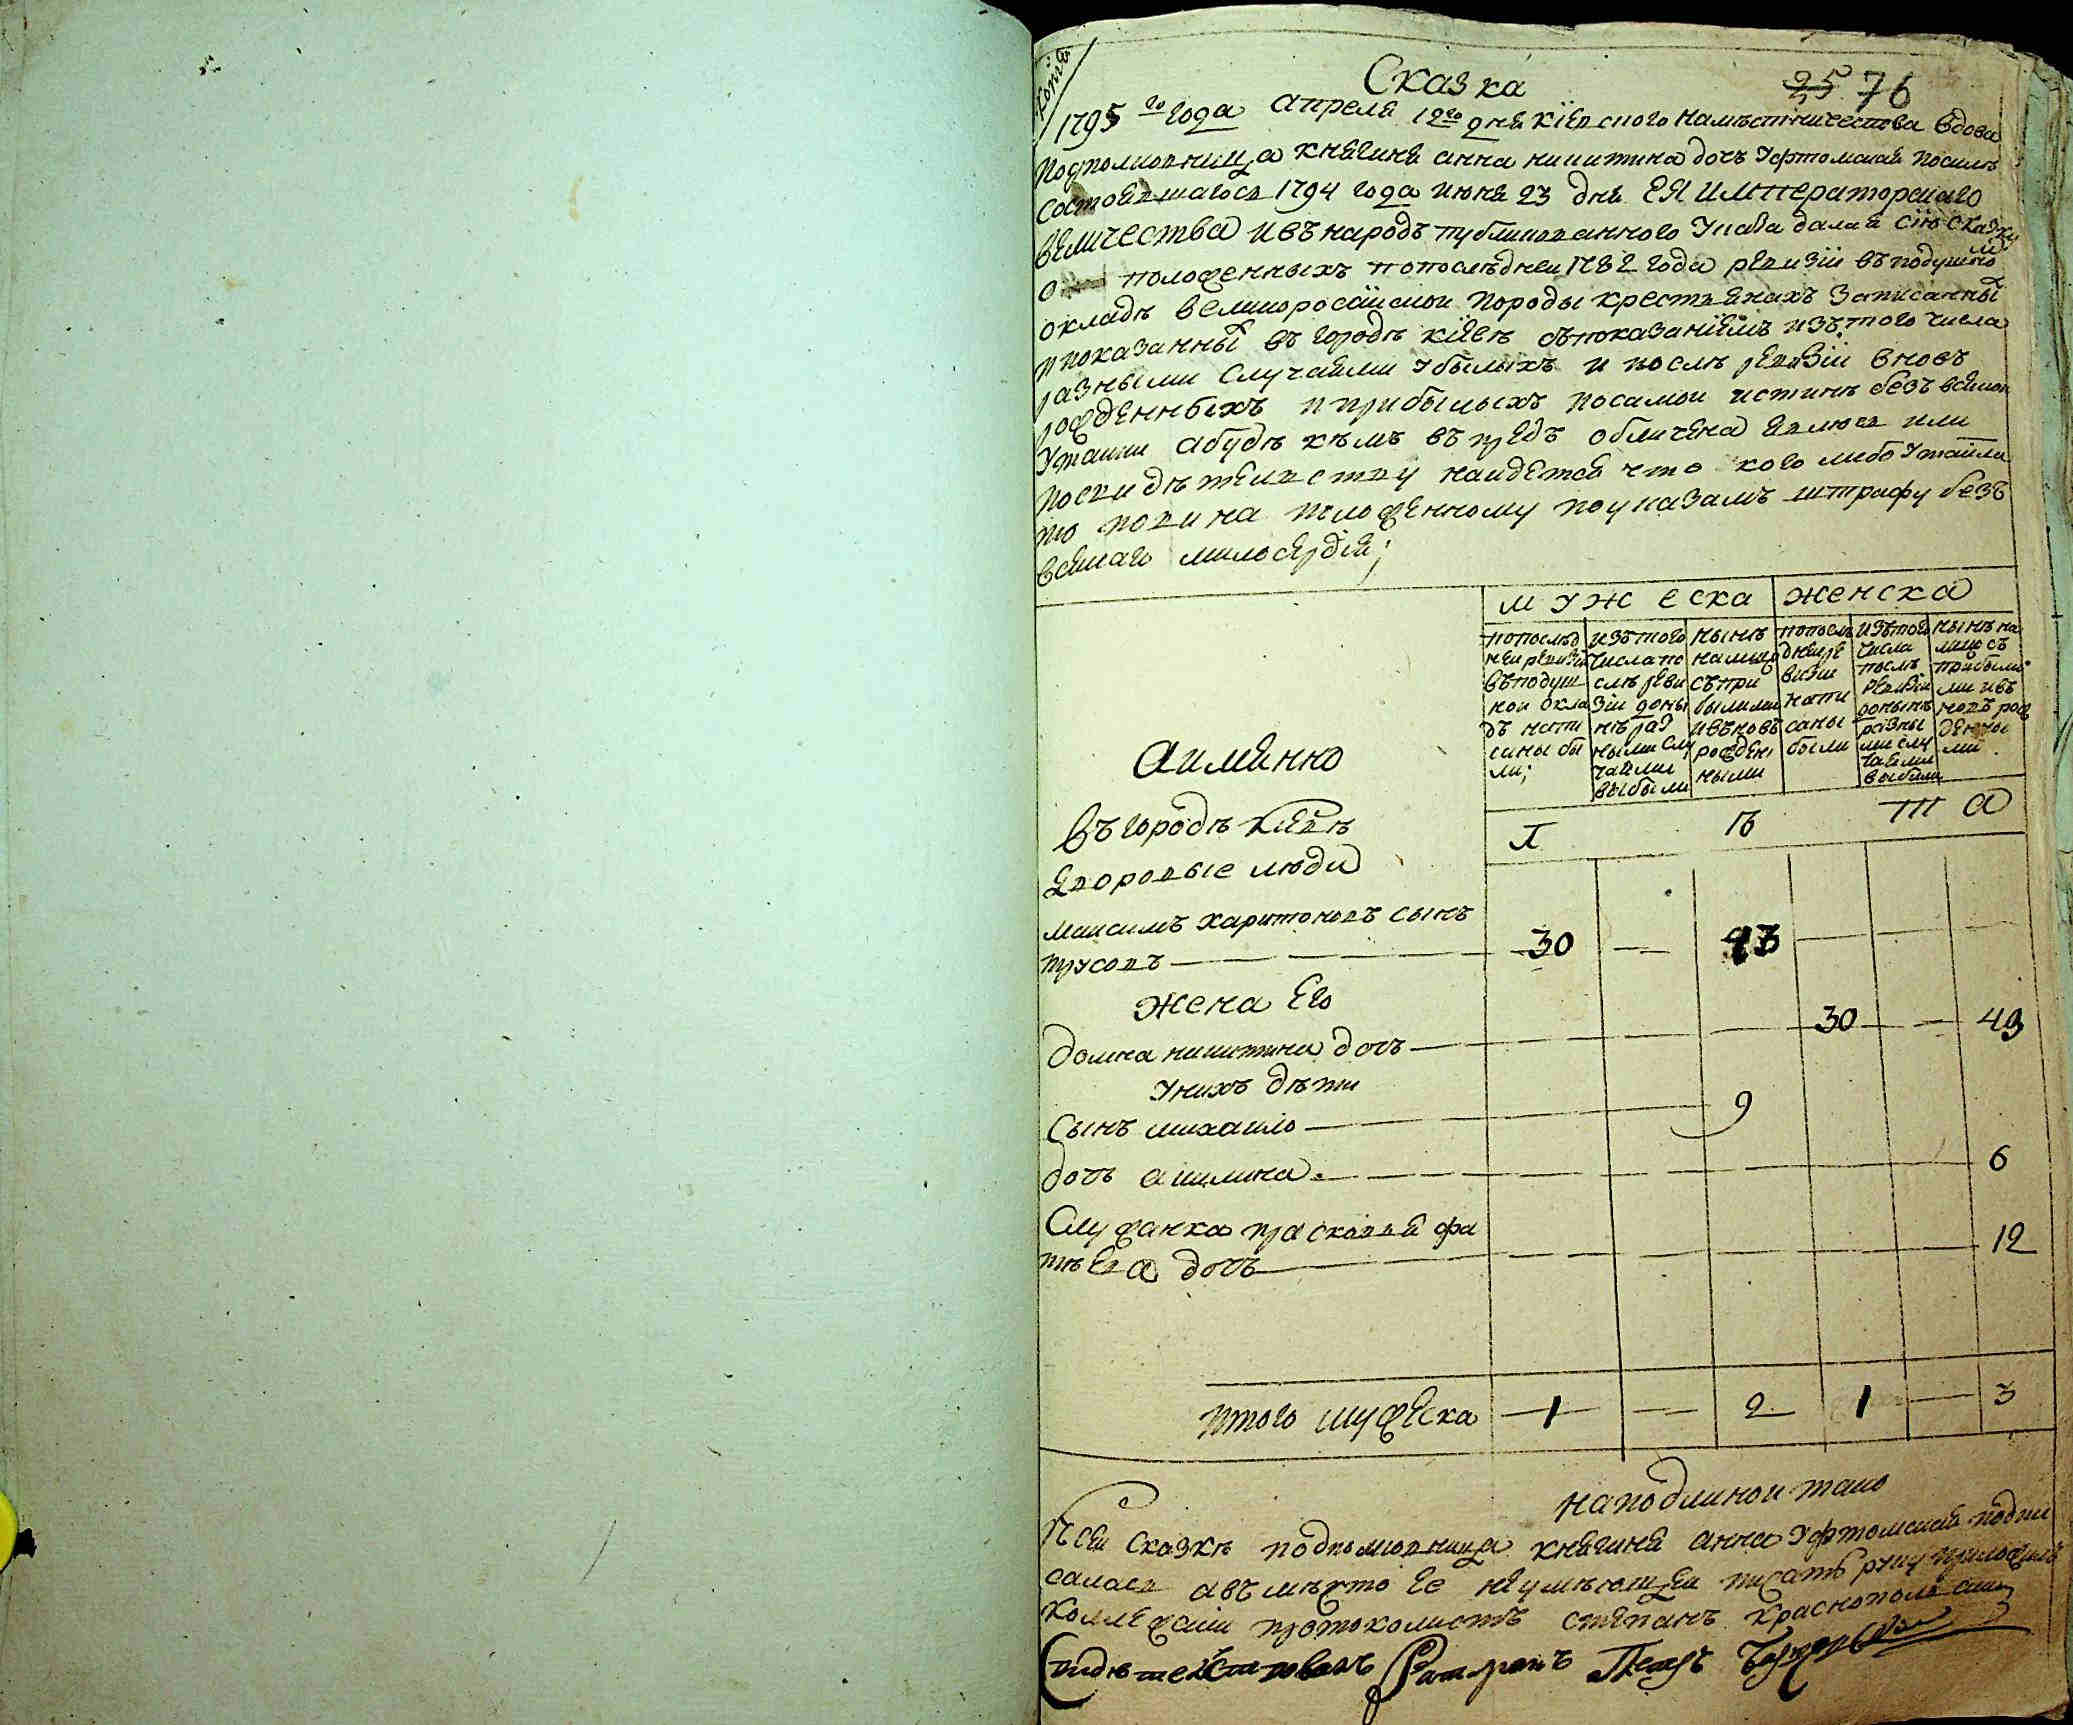 Копія
Сказка
25 76
1795 го года апреля 12го дня Кіевского наместничества вдова
подполковница княгиня анна никитина дочь Ухтомская посиле
состоявшагося 1794 года июня 23 дня ЕЯ императорскаго
величества ивъ народъ публикованного указа дала сию сказку
о положенныхъ попоследнеи 1782 года ревизіи въ подушно
окладъ великоросаискои породы крестьянахъ записанны
и показанны въ городѣ кіевѣ съпоказаніемъ изъ того числа
разными случаями убылыхъ и послѣ ревизіи вновь
рожденныхъ и прибылыхъ посамои истинѣ безъ всякои
утаики абудѣ кѣмъ въ предъ обличена явлюся или
посвидѣтелству наидется что кого либо утаила
то повина положенному поуказамъ штрафу безъ
всякаго милосердія;
мужеска женска
попослѣд неи ревизіи въподуш нои окла дъ напи саны бы ли;
изътого числа по слѣ реви зіи доны нѣ раз ными слу чаями выбыли
нынѣ налицо съпри былыми ивъновь рожден ными
попослѣ днеи ре визіи напи саны были
изътого числа послѣ ревизіи донынѣ разны ми слу чаями выбыли
нынѣ на лицо съ прибылы ми ивъ новь рож денны ми
аимянно
лѣта
въ городѣ кіевѣ
дворовые люди
максимъ харитоновъ сынъ
трусовъ 30 43
жена его
домна никитина дочь 30 49
унихъ дѣти
сынъ михаило 9
дочь акилина 6
служанка прасковья фа
тѣева дочь 12
итого мужеска 1 2 1 3
наподлинои тако
Ксеи сказкѣ подполковница княгиня анна Ухтомская подпи
салась авъмѣсто ее неумѣющеи писать руку приложилъ
коллежскіи протоколистъ степанъ краснополскии
Свидетелствовалъ Ратманъ Петръ